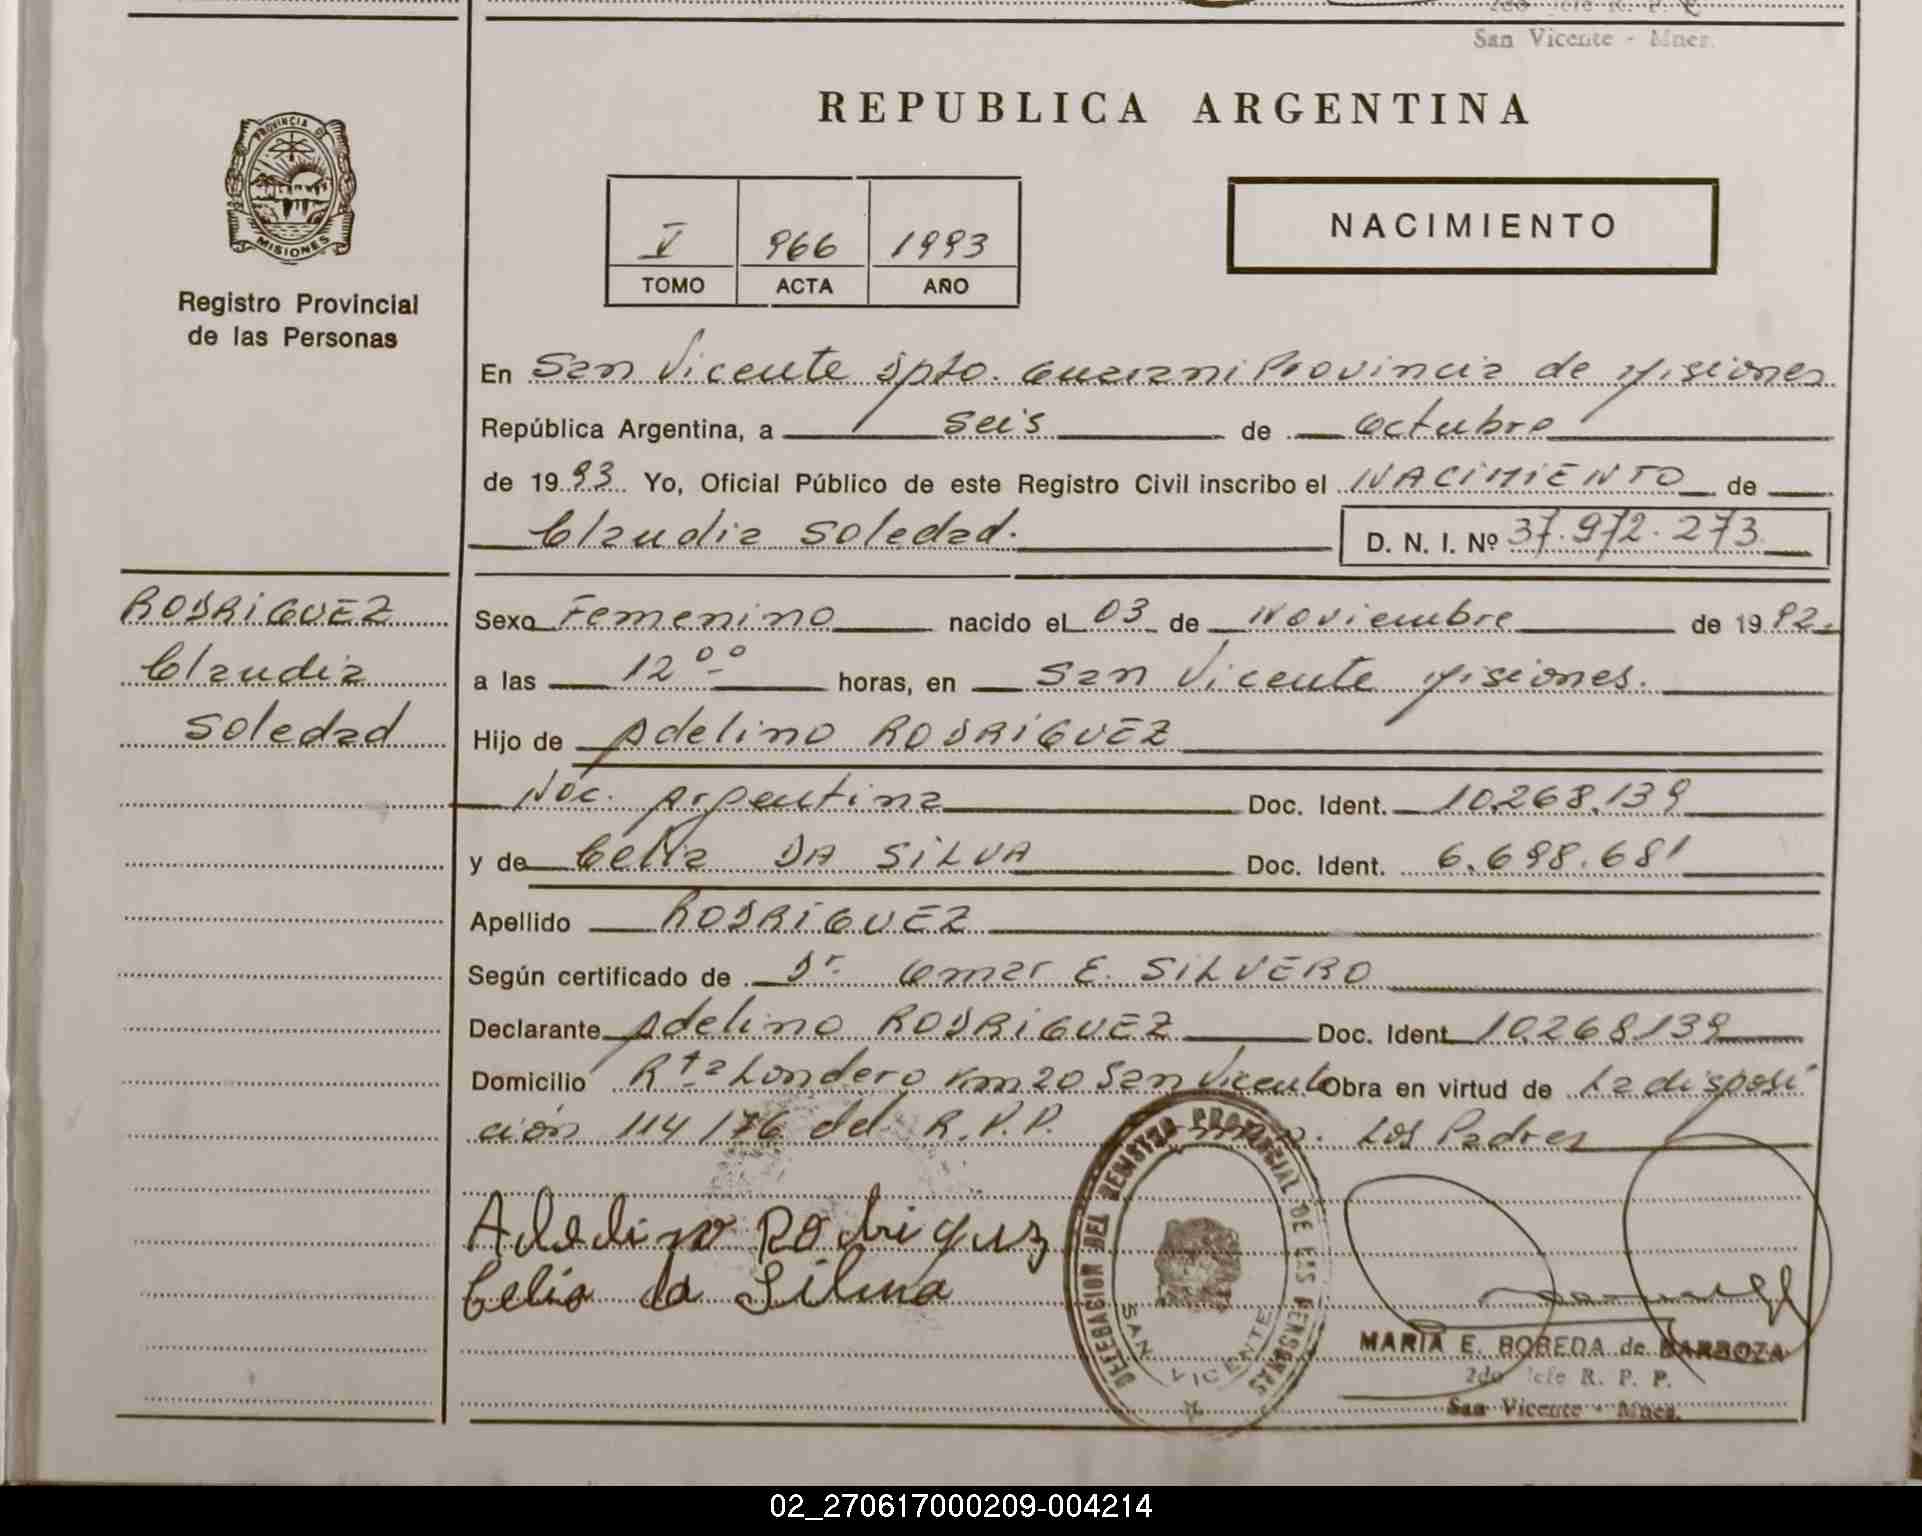 2do Jefe R. P. P.
San Vicente - Mnes.
REPUBLICA ARGENTINA
PROVINCIA D
MISIONES
Registro Provincial
de las Personas
V 966 1993
TOMO ACTA AÑO
NACIMIENTO
En San Vicente Dpto. Guarani Provincia de Misiones
República Argentina, a seis de Octubre
de 1993 Yo, Oficial Público de este Registro Civil inscribo el NACIMIENTO de
Claudia Soledad. D. N. I. Nº 37.972.273
RODRIGUEZ
Claudia
Soledad
Sexo Femenino nacido el 03 de Noviembre de 1992.
a las 12ºº horas, en San Vicente Misiones.
Hijo de Adelino RODRIGUEZ
Nac. Argentina Doc. Ident. 10.268.139
y de Celia DA SILVA Doc. Ident. 6.698.681
Apellido RODRIGUEZ
Según certificado de Dr. Omar E. SILVERO
Declarante Adelino RODRIGUEZ Doc. Ident 10.268.139
Domicilio Rta Londero Km 20 San Vicente Obra en virtud de La disposi
ción 114/76 del R.P.P. Los Padres
Adelino Rodriguez
Celia da Silva
DELEGACION DEL REGISTRO PROVINCIAL DE LAS PERSONAS
SAN VICENTE
MARIA E. BOBEDA de BARBOZA
2do Jefe R. P. P.
San Vicente - Mnes.
02_270617000209-004214